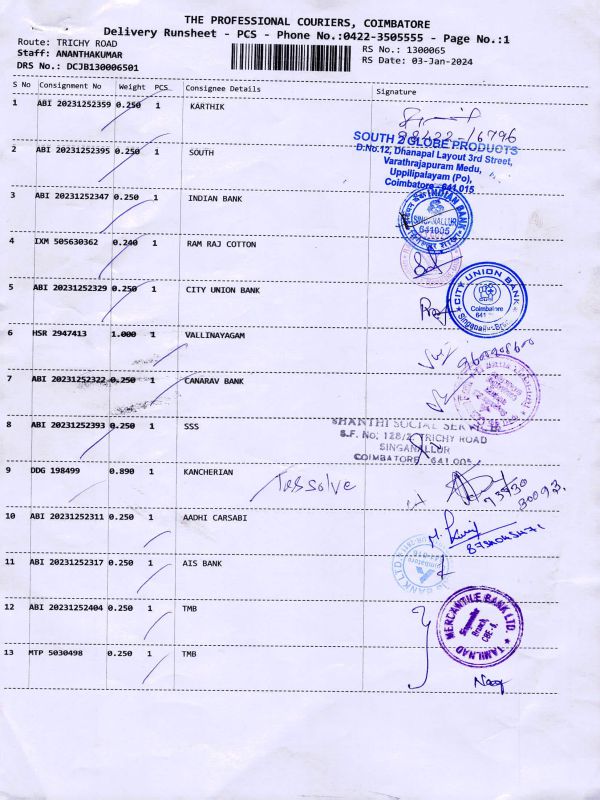 THE PROFESSIONAL COURIERS, COIMBATORE
Delivery Runsheet - PCS - Phone No.:0422-3505555 - Page No.:1
Route: TRICHY ROAD
RS No.: 1300065
Staff: ANANTHAKUMAR
RS Date: 03-Jan-2024
DRS No.: DCJB130006501
S No Consignment No Weight PCS Consignee Details Signature
1 ABI 20231252359 0.250 1 KARTHIK
98422-16796
SOUTH 2 GLOBE PRODUCTS
D.No.12, Dhanapal Layout 3rd Street,
Varathrajapuram Medu,
Uppilipalayam (Po),
Coimbatore - 641 015
2 ABI 20231252395 0.250 1 SOUTH
3 ABI 20231252347 0.250 1 INDIAN BANK
INDIAN BANK
SINGANALLUR
641005
4 IXM 505630362 0.240 1 RAM RAJ COTTON
5 ABI 20231252329 0.250 1 CITY UNION BANK
CITY UNION BANK
Coimbatore
641
6 HSR 2947413 1.000 1 VALLINAYAGAM
7 ABI 20231252322 0.250 1 CANARAV BANK
8 ABI 20231252393 0.250 1 SSS
SHANTHI SOCIAL SERVICE
S.F. No, 128/2, TRICHY ROAD
SINGANALLUR
COIMBATORE 641 005
9 DDG 198499 0.890 1 KANCHERIAN
73730
30093
10 ABI 20231252311 0.250 1 AADHI CARSABI
11 ABI 20231252317 0.250 1 AIS BANK
BANK LTD
12 ABI 20231252404 0.250 1 TMB
TAMILNAD MERCANTILE BANK LTD.
Singanallur
Branch
CBE-
13 MTP 5030498 0.250 1 TMB